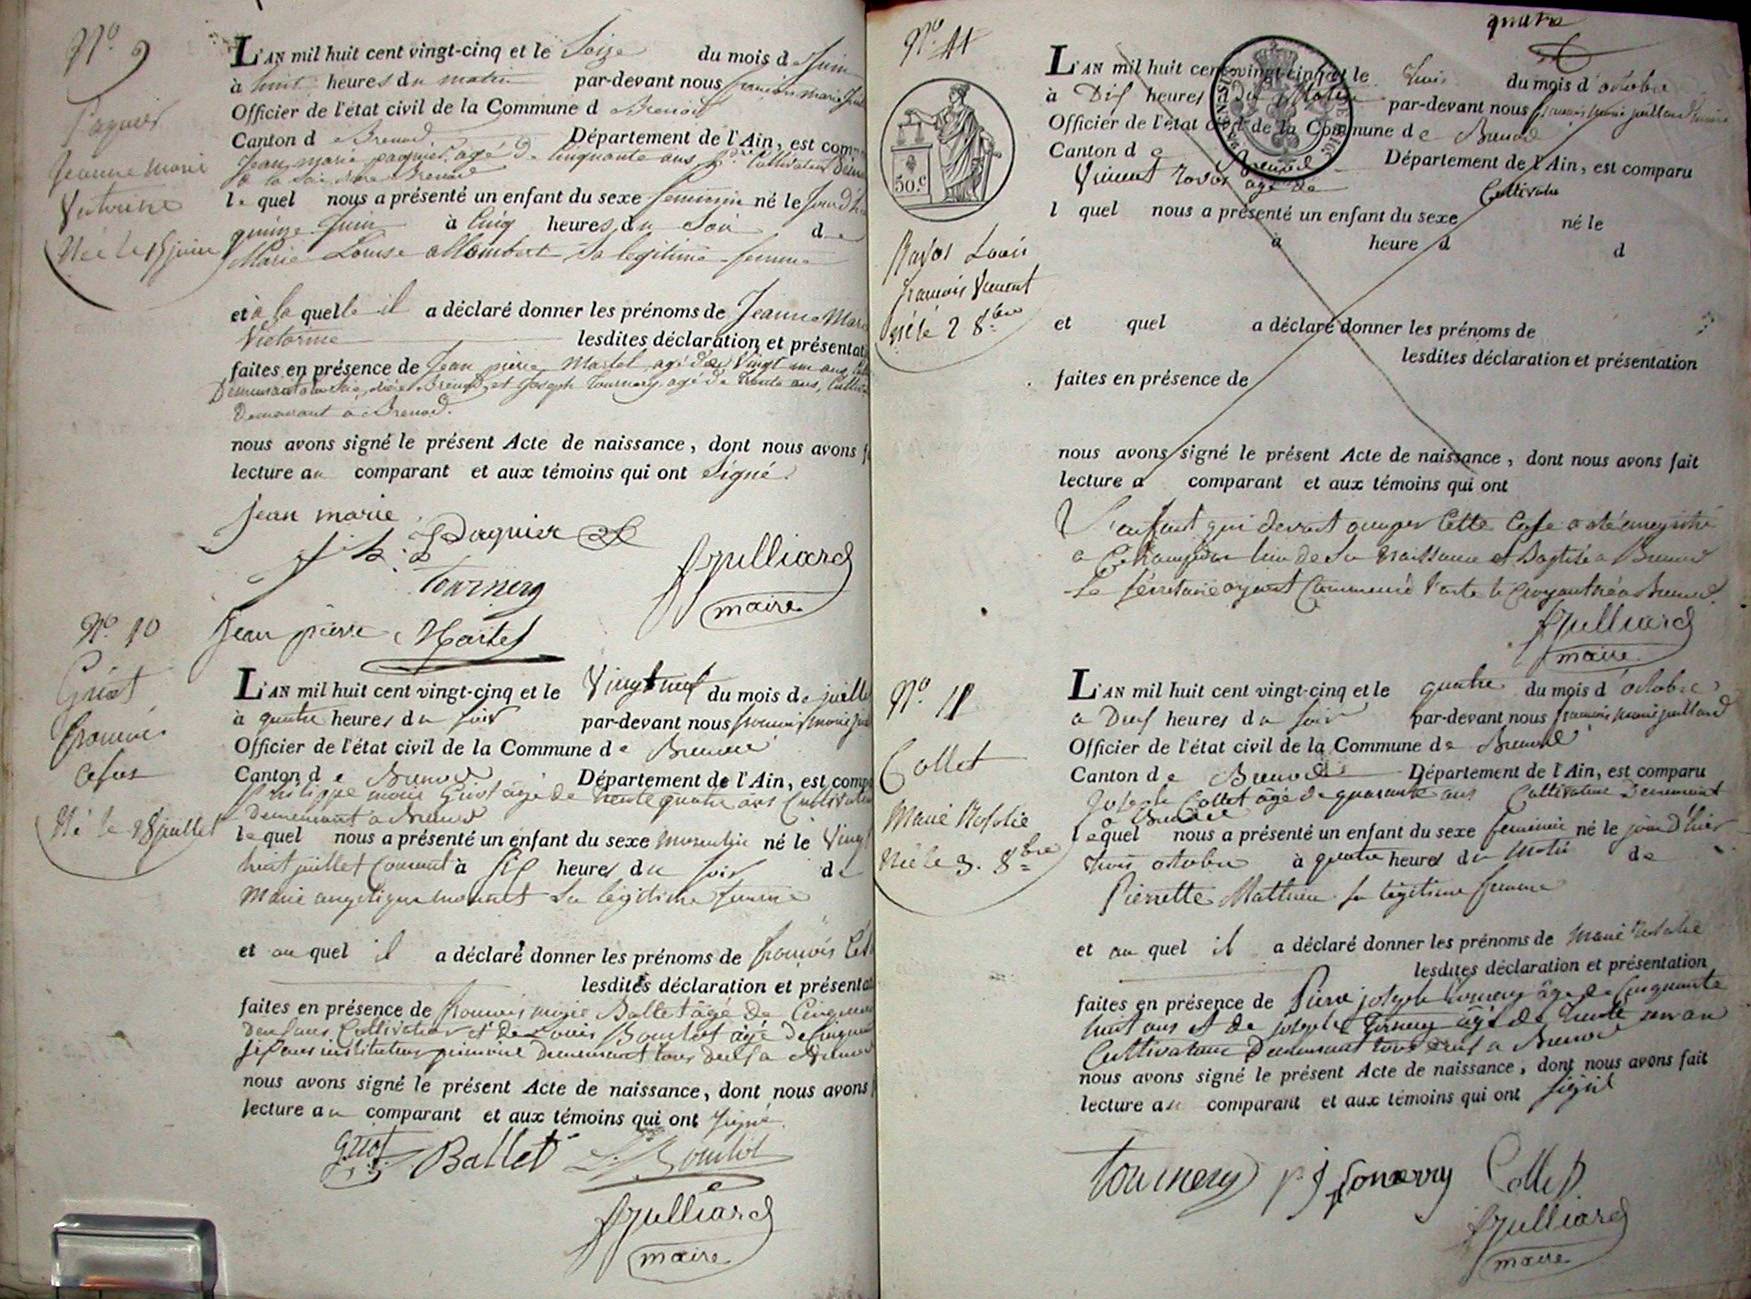 N.º 9
Paquier
Jeanne marie
Victorine
Née le 15 juin
L'AN mil huit cent vingt-cinq et le Seize du mois de Juin
à huit heures du matin par-devant nous françois marie
Officier de l'état civil de la Commune d Brenod
Canton d e Brenod Département de l'Ain, est
Jean marie paquier, agé de Cinquante ans, Cultivateur
Brenod
le quel nous a présenté un enfant du sexe feminin né le
quinze Juin à Cinq heures du Soir de
Marie Louise Mombert Sa légitime femme
et à la quelle il a déclaré donner les prénoms de Jeanne
Victorine lesdites déclaration et
faites en présence de Jean pierre Martel, agé de Vingt un ans
Demeurant Brenod, et Joseph Tournery, agé de trente ans,
Demeurant à Brenod.
nous avons signé le présent Acte de naissance, dont nous avons
lecture au comparant et aux témoins qui ont Signé.
Jean marie
Paquier
Tournery
fjulliard
maire
Jean pierre Martel
N.º 10
Guiot
françois
Né le 28 juillet
L'AN mil huit cent vingt-cinq et le Vingt neuf du mois de
à quatre heures du soir par-devant nous françois marie
Officier de l'état civil de la Commune de Brenod
Canton d e Brenod Département de l'Ain, est
Philippe marie Guiot âgé de trente quatre ans Cultivateur
Demeurant à Brenod
le quel nous a présenté un enfant du sexe masculin né le
huit juillet Courant à six heures du soir de
Marie angelique Sa légitime femme
et au quel il a déclaré donner les prénoms de françois
lesdites déclaration et
faites en présence de françois marie Ballet âgé de
Deux ans Cultivateur et de Louis âgé de
Six ans instituteur primaire Demeurant tous deux a Brenod
nous avons signé le présent Acte de naissance, dont nous avons
lecture au comparant et aux témoins qui ont signé.
guiot Ballet
fjulliard
maire
quatre
N.º 11
50.c
Louis
françois Vincent
né le 2 8.bre
L'AN mil huit cent vingt-cinq et le trois du mois d'octobre
à Dix heures du Matin par-devant nous françois marie julliard maire
Officier de l'état civil de la Commune d e Brenod
Canton d e Brenod Département de l'Ain, est comparu
Vincent agé de Cultivateur
l quel nous a présenté un enfant du sexe né le
à heure d d
et quel a déclaré donner les prénoms de
lesdites déclaration et présentation
faites en présence de
nous avons signé le présent Acte de naissance, dont nous avons fait
lecture a comparant et aux témoins qui ont
L'enfant qui devait occuper Cette Case a été enregistré
a Champdor lieu de Sa naissance et Baptisé a Brenod
Le Sécretaire ayant Commencé l'acte le Croyant né a Brenod.
fjulliard
maire
N.º 11
Collet
Marie Rosalie
Née le 3. 8.bre
L'AN mil huit cent vingt-cinq et le quatre du mois d'octobre
a Deux heures du soir par-devant nous françois marie julliard
Officier de l'état civil de la Commune de Brenod
Canton d e Brenod Département de l'Ain, est comparu
Joseph Collet âgé de quarante ans Cultivateur Demeurant
a Brenod
le quel nous a présenté un enfant du sexe feminin né le jour d'hier
trois octobre à quatre heures du Matin de
Pierrette Mathieu sa légitime femme
et au quel il a déclaré donner les prénoms de Marie Rosalie
lesdites déclaration et présentation
faites en présence de Pierre joseph Tournery âgé de Cinquante
huit ans et de joseph Tournery âgé de trente
Cultivateurs Demeurant tous deux a Brenod
nous avons signé le présent Acte de naissance, dont nous avons fait
lecture au comparant et aux témoins qui ont signé
Tournery p j Tonerry Collet
fjulliard
maire